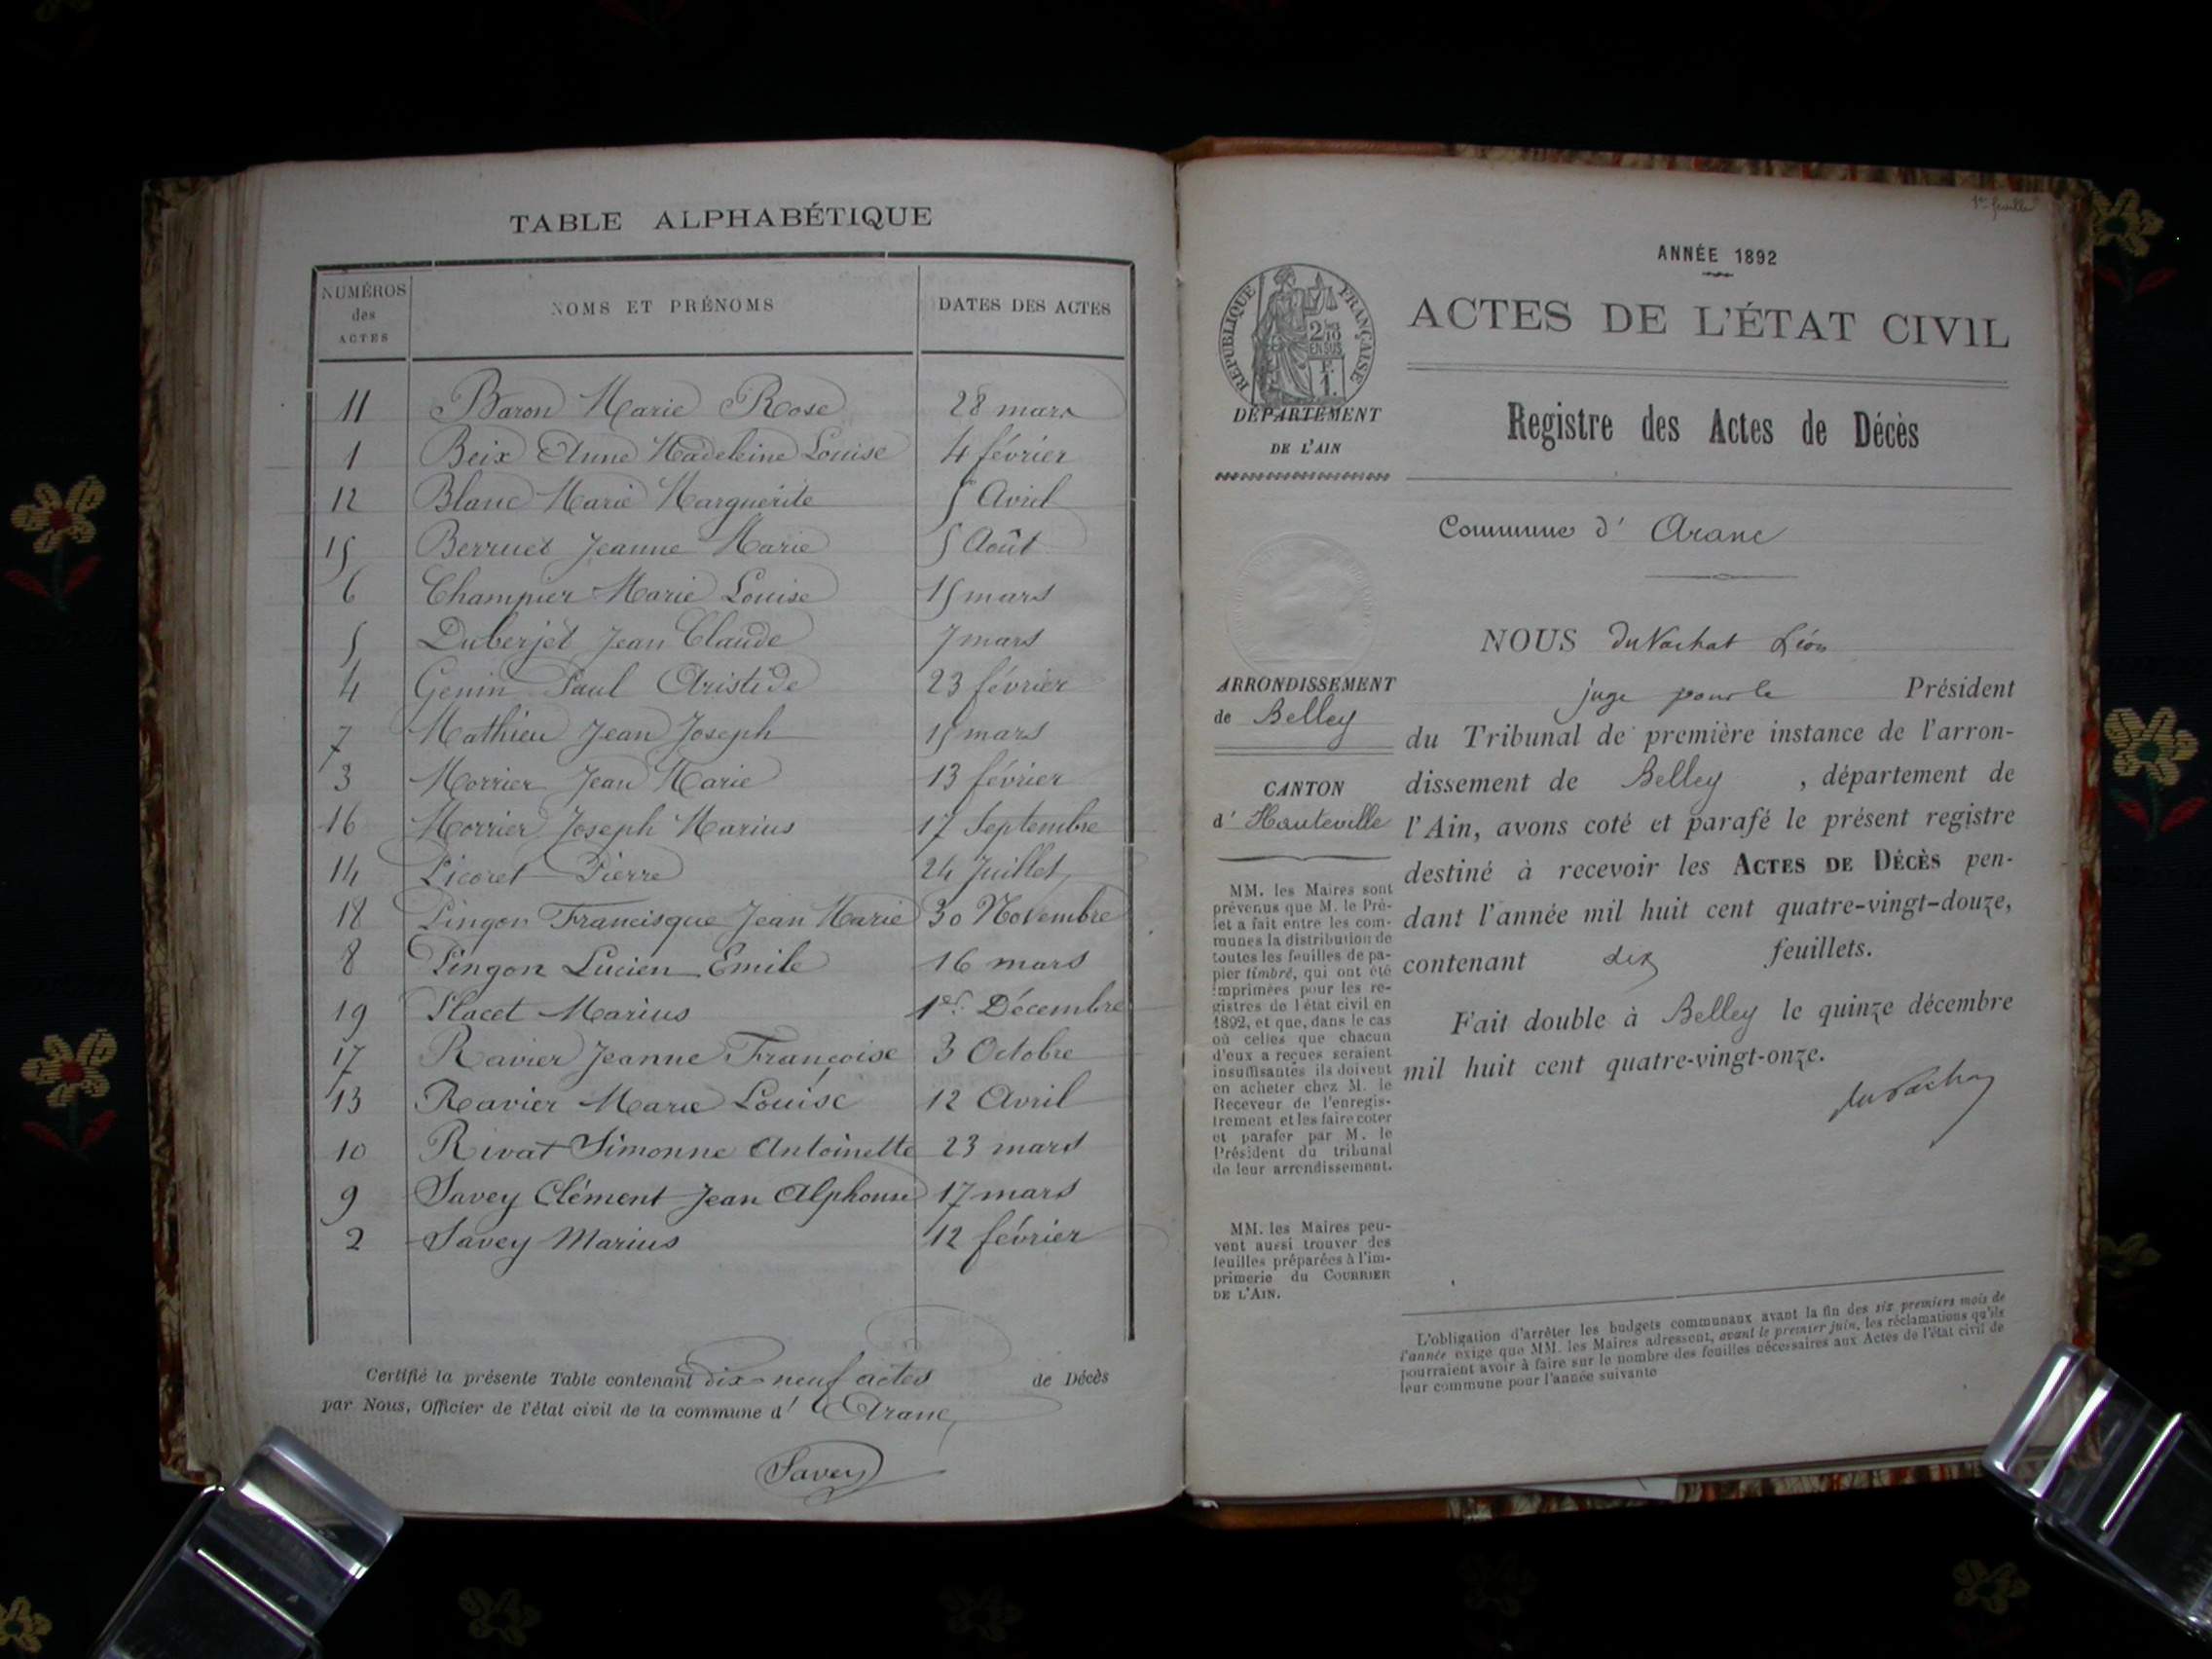 TABLE ALPHABÉTIQUE
NUMÉROS des ACTES NOMS ET PRÉNOMS DATES DES ACTES
11 Baron Marie Rose 28 mars
1 Beix Anne Madeleine Louise 4 février
12 Blanc Marie Marguerite 5 Avril
15 Berruet Jeanne Marie 5 Août
6 Champier Marie Louise 15 mars
5 Duberjet Jean Claude 7 mars
4 Genin Paul Aristide 23 février
7 Mathieu Jean Joseph 15 mars
3 Morrier Jean Marie 13 février
16 Morrier Joseph Marius 17 Septembre
14 Picoret Pierre 24 Juillet
18 Pingon Francisque Jean Marie 30 Novembre
8 Pingon Lucien Emile 16 mars
19 Placet Marius 1er Décembre
17 Ravier Jeanne Françoise 3 Octobre
13 Ravier Marie Louise 12 Avril
10 Rivat Simonne Antoinette 23 mars
9 Savey Clément Jean Alphonse 17 mars
2 Savey Marius 12 février
Certifié la présente Table contenant dix-neuf actes de Décès
par Nous, Officier de l'état civil de la commune d' Aranc,
Savey
1re feuille
ANNÉE 1892
ACTES DE L'ÉTAT CIVIL
Registre des Actes de Décès
Commune d' Aranc
NOUS du Vachat Léon
juge pour le Président
du Tribunal de première instance de l'arron-
dissement de Belley , département de
l'Ain, avons coté et parafé le présent registre
destiné à recevoir les ACTES DE DÉCÈS pen-
dant l'année mil huit cent quatre-vingt-douze,
contenant dix feuillets.
Fait double à Belley le quinze décembre
mil huit cent quatre-vingt-onze.
du Vachat
RÉPUBLIQUE FRANÇAISE
2/10
EN SUS
F.
1.
DÉPARTEMENT
DE L'AIN
ARRONDISSEMENT
de Belley
CANTON
d' Hauteville
MM. les Maires sont
prévenus que M. le Pré-
fet a fait entre les com-
munes la distribution de
toutes les feuilles de pa-
pier timbré, qui ont été
imprimées pour les re-
gistres de l'état civil en
1892, et que, dans le cas
où celles que chacun
d'eux a reçues seraient
insuffisantes ils doivent
en acheter chez M. le
Receveur de l'enregis-
trement et les faire coter
et parafer par M. le
Président du tribunal
de leur arrondissement.
MM. les Maires peu-
vent aussi trouver des
feuilles préparées à l'im-
primerie du COURRIER
DE L'AIN.
L'obligation d'arrêter les budgets communaux avant la fin des six premiers mois de
l'année exige que MM. les Maires adressent, avant le premier juin, les réclamations qu'ils
pourraient avoir à faire sur le nombre des feuilles nécessaires aux Actes de l'état civil de
leur commune pour l'année suivante